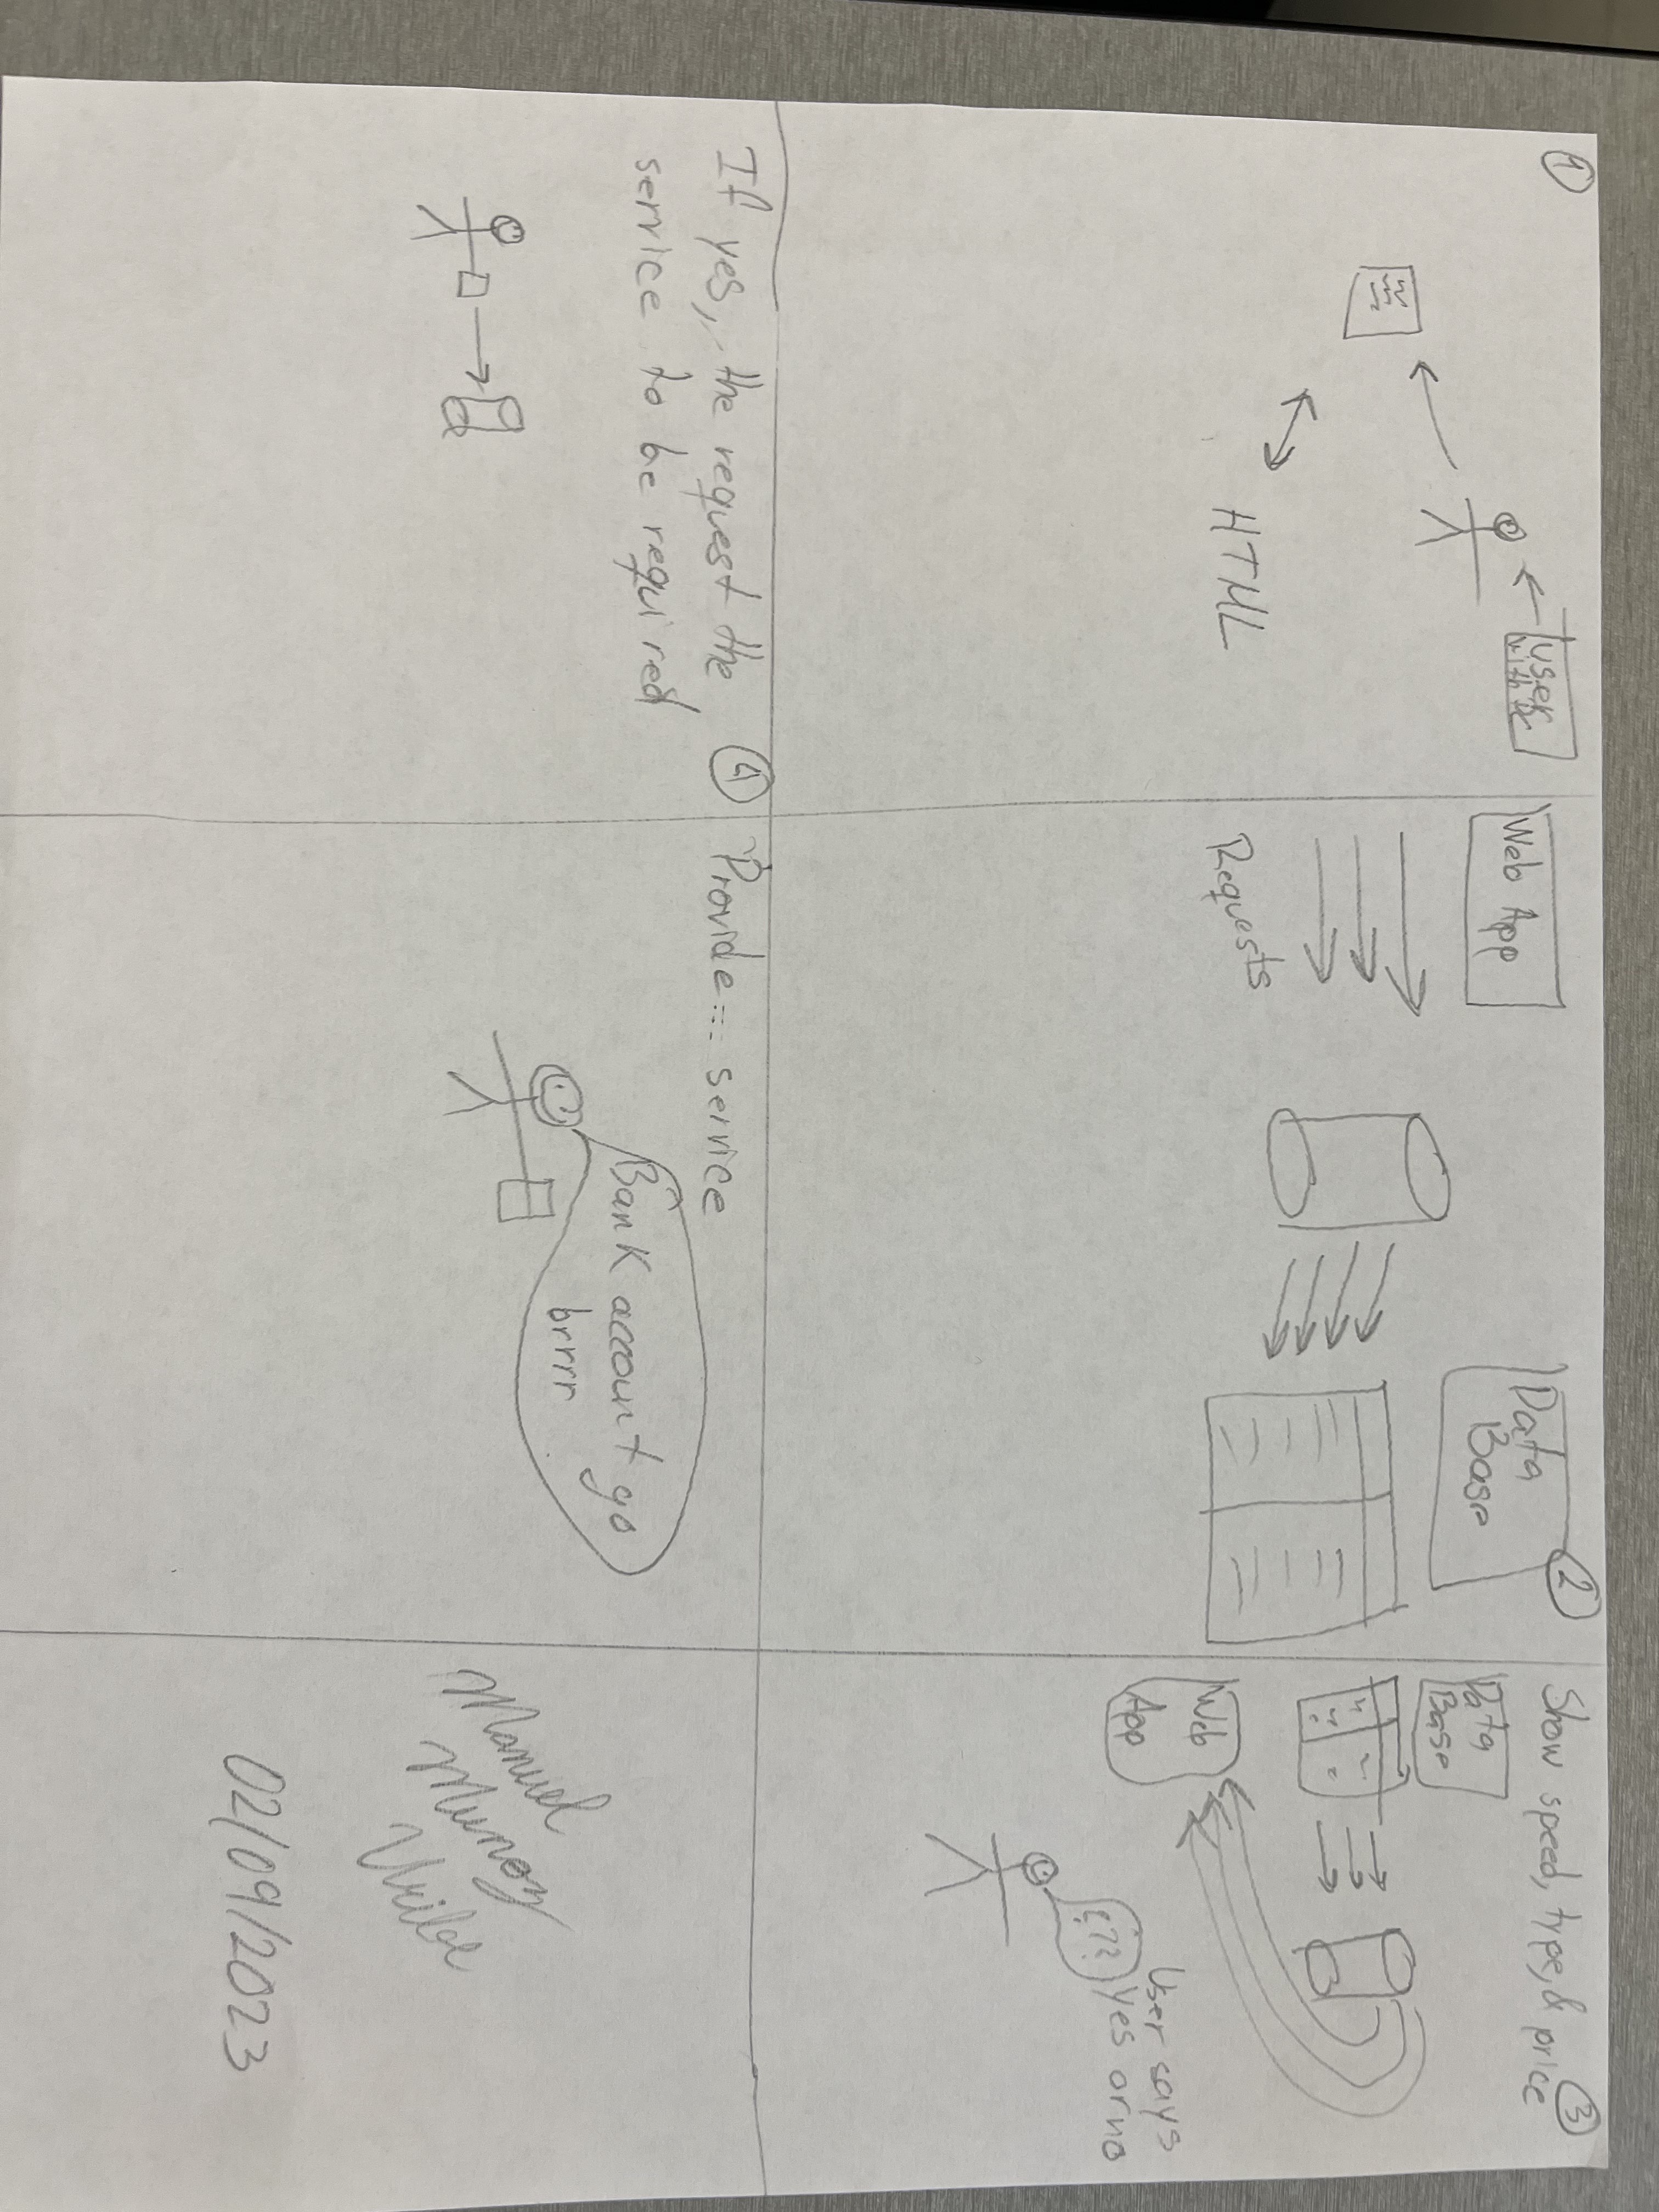 1
user
with
HTML
Web App
Requests
Data
Base
2
Show speed, type, & price
3
Data
Base
Web
App
???
User says
yes or no
If yes, the request the
service to be required
4
Provide == service
Bank account go
brrrr
Manuel
Munoz
Uribe
02/09/2023